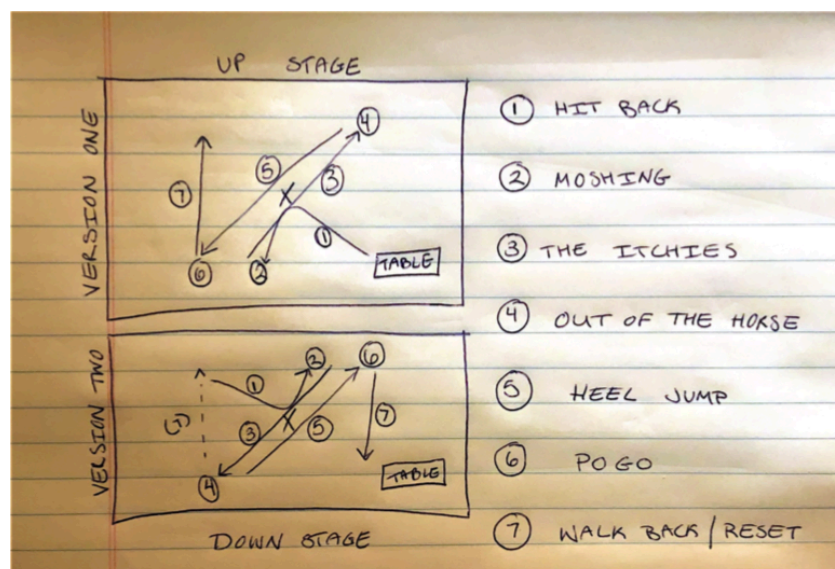 UP STAGE
VERSION ONE
4
5
3
7
X
1
6
2
TABLE
VERSION TWO
2
6
1
(7)
X
7
3
5
4
TABLE
DOWN STAGE
1 HIT BACK
2 MOSHING
3 THE ITCHIES
4 OUT OF THE HORSE
5 HEEL JUMP
6 POGO
7 WALK BACK / RESET